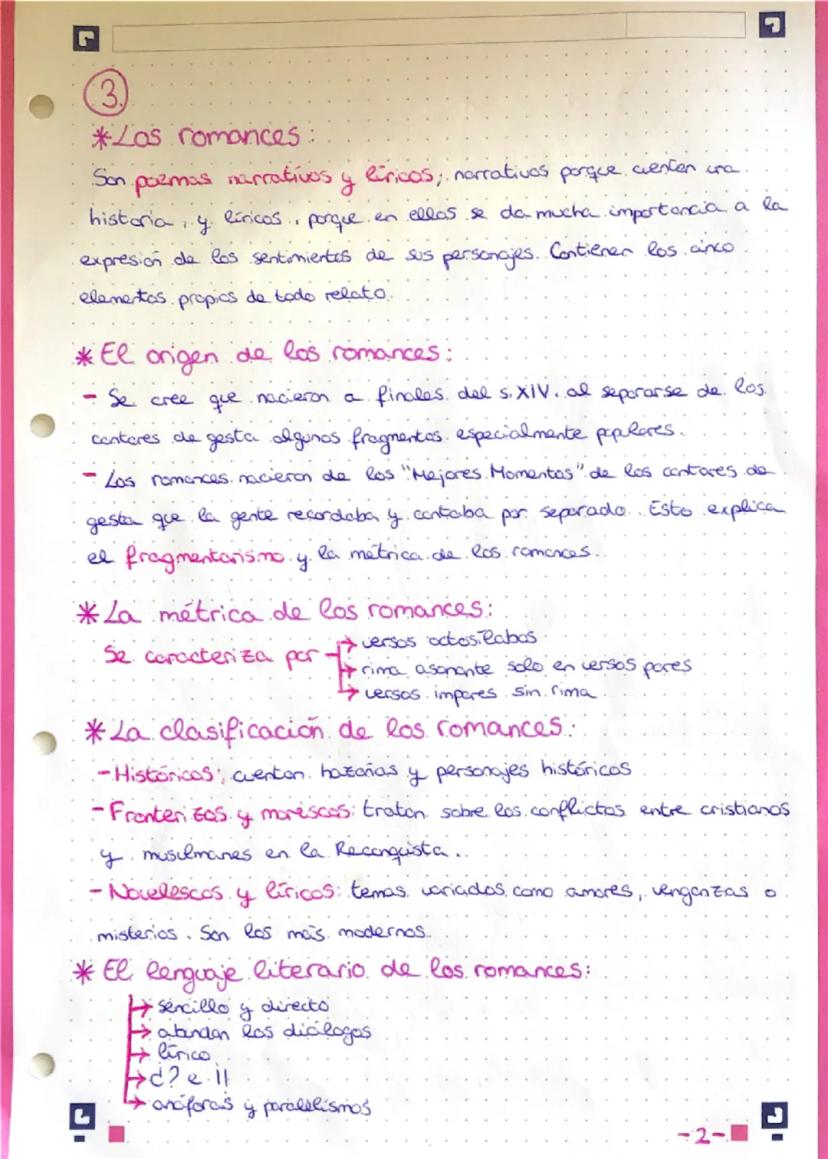 3.
*Los romances:
Son poemas narrativos y líricos; narrativos porque cuentan una
historia, y líricos, porque en ellos se da mucha importancia a la
expresión de los sentimientos de sus personajes. Contienen los cinco
elementos propios de todo relato.
*El origen de los romances:
- Se cree que nacieron a finales del s.XIV, al separarse de los
cantares de gesta algunos fragmentos especialmente populares.
- Los romances nacieron de los "Mejores Momentos" de los cantares de
gesta que la gente recordaba y cantaba por separado. Esto explica
el fragmentarismo y la métrica de los romances.
*La métrica de los romances:
Se caracteriza por → versos octosílabos
→ rima asonante solo en versos pares
→ versos impares sin rima
*La clasificación de los romances:
- Históricos: cuentan hazañas y personajes históricos
- Fronterizos y moriscos: tratan sobre los conflictos entre cristianos
y musulmanes en la Reconquista.
- Novelescos y líricos: temas variados como amores, venganzas o
misterios. Son los más modernos.
* El lenguaje literario de los romances:
→ sencillo y directo
→ abundan los diálogos
→ lírico
→ ¿? e ¡!
→ anáforas y paralelismos
-2-